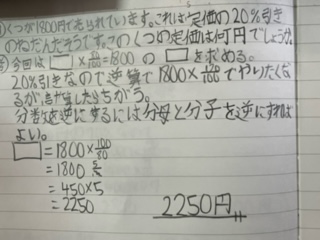 くつが1800円で売られています。これは定価の20%引き
のねだんだそうです。このくつの定価は何円でしょうか。
今回は□×80/100=1800の□を求める。
20%引きなので逆算で1800×80/100でやりたくな
るが
ちがう。
分数を逆にするには分母と分子を逆にすれば
よい。
□=1800×100/80
=1800 5/4
=450×5
=2250
2250円